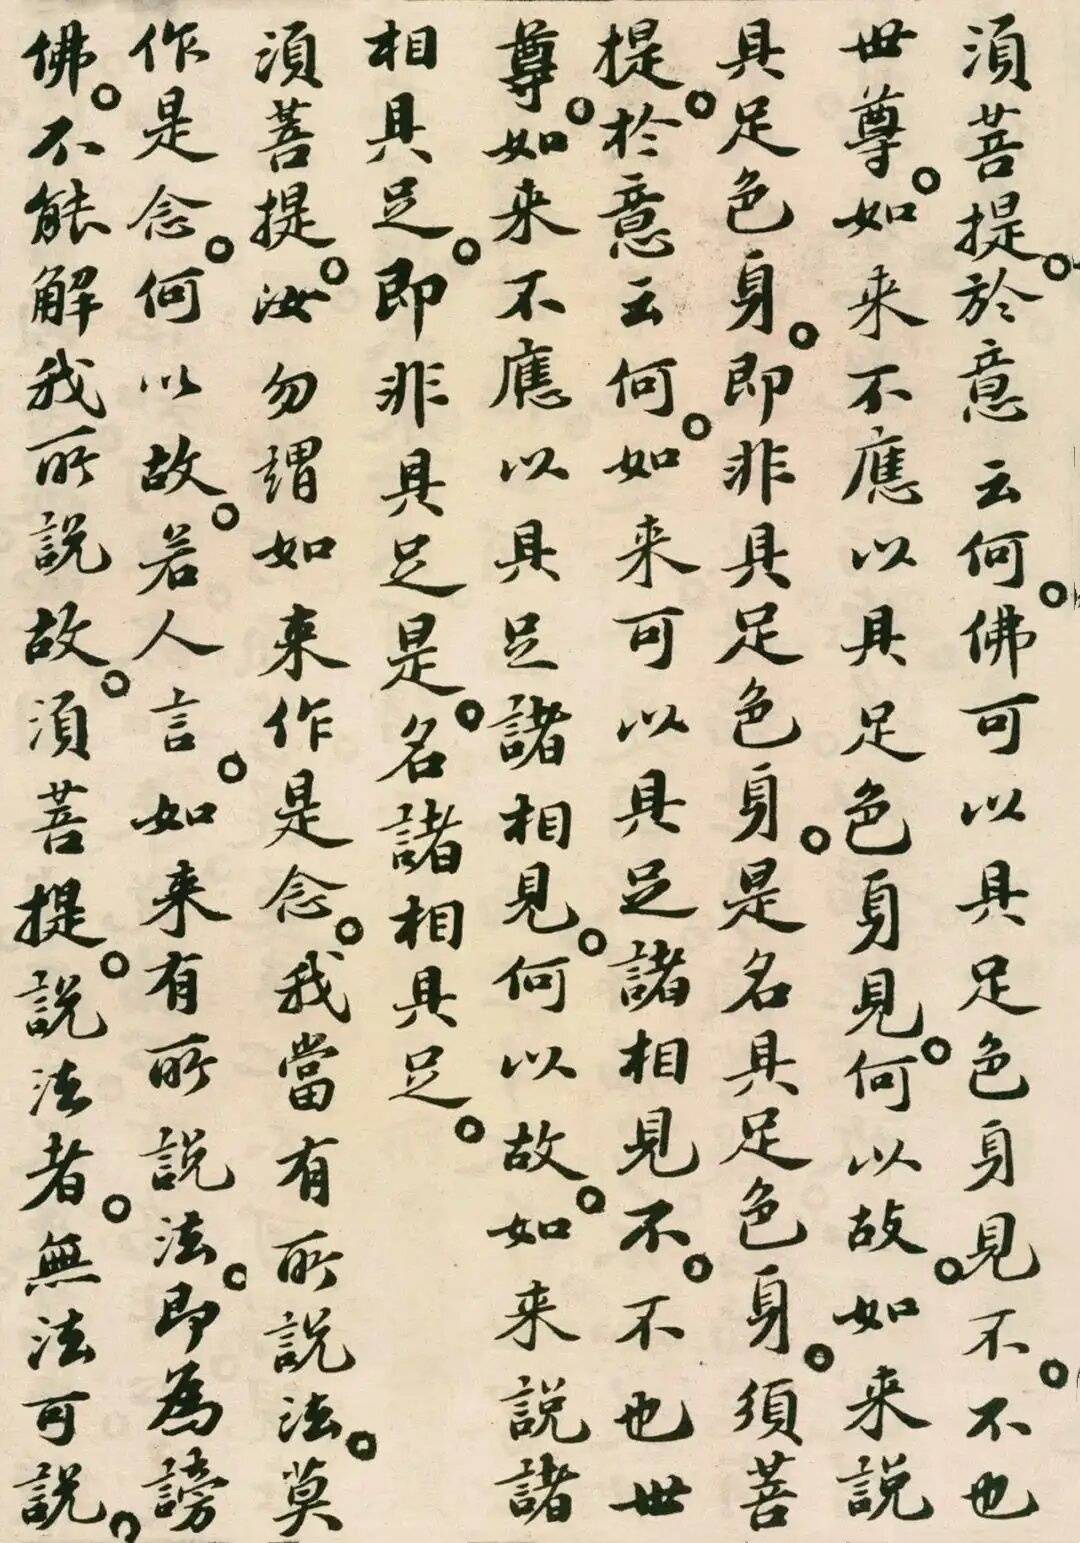 須菩提。於意云何。佛可以具足色身見不。不也
世尊。如来不應以具足色身見。何以故。如来説
具足色身。即非具足色身。是名具足色身。須菩
提。於意云何。如来可以具足諸相見不。不也世
尊。如来不應以具足諸相見。何以故。如来説諸
相具足。即非具足是。名諸相具足。
須菩提。汝勿謂如来作是念。我當有所説法。莫
作是念。何以故。若人言。如来有所説法。即為謗
佛。不能解我所説故。須菩提。説法者。無法可説。